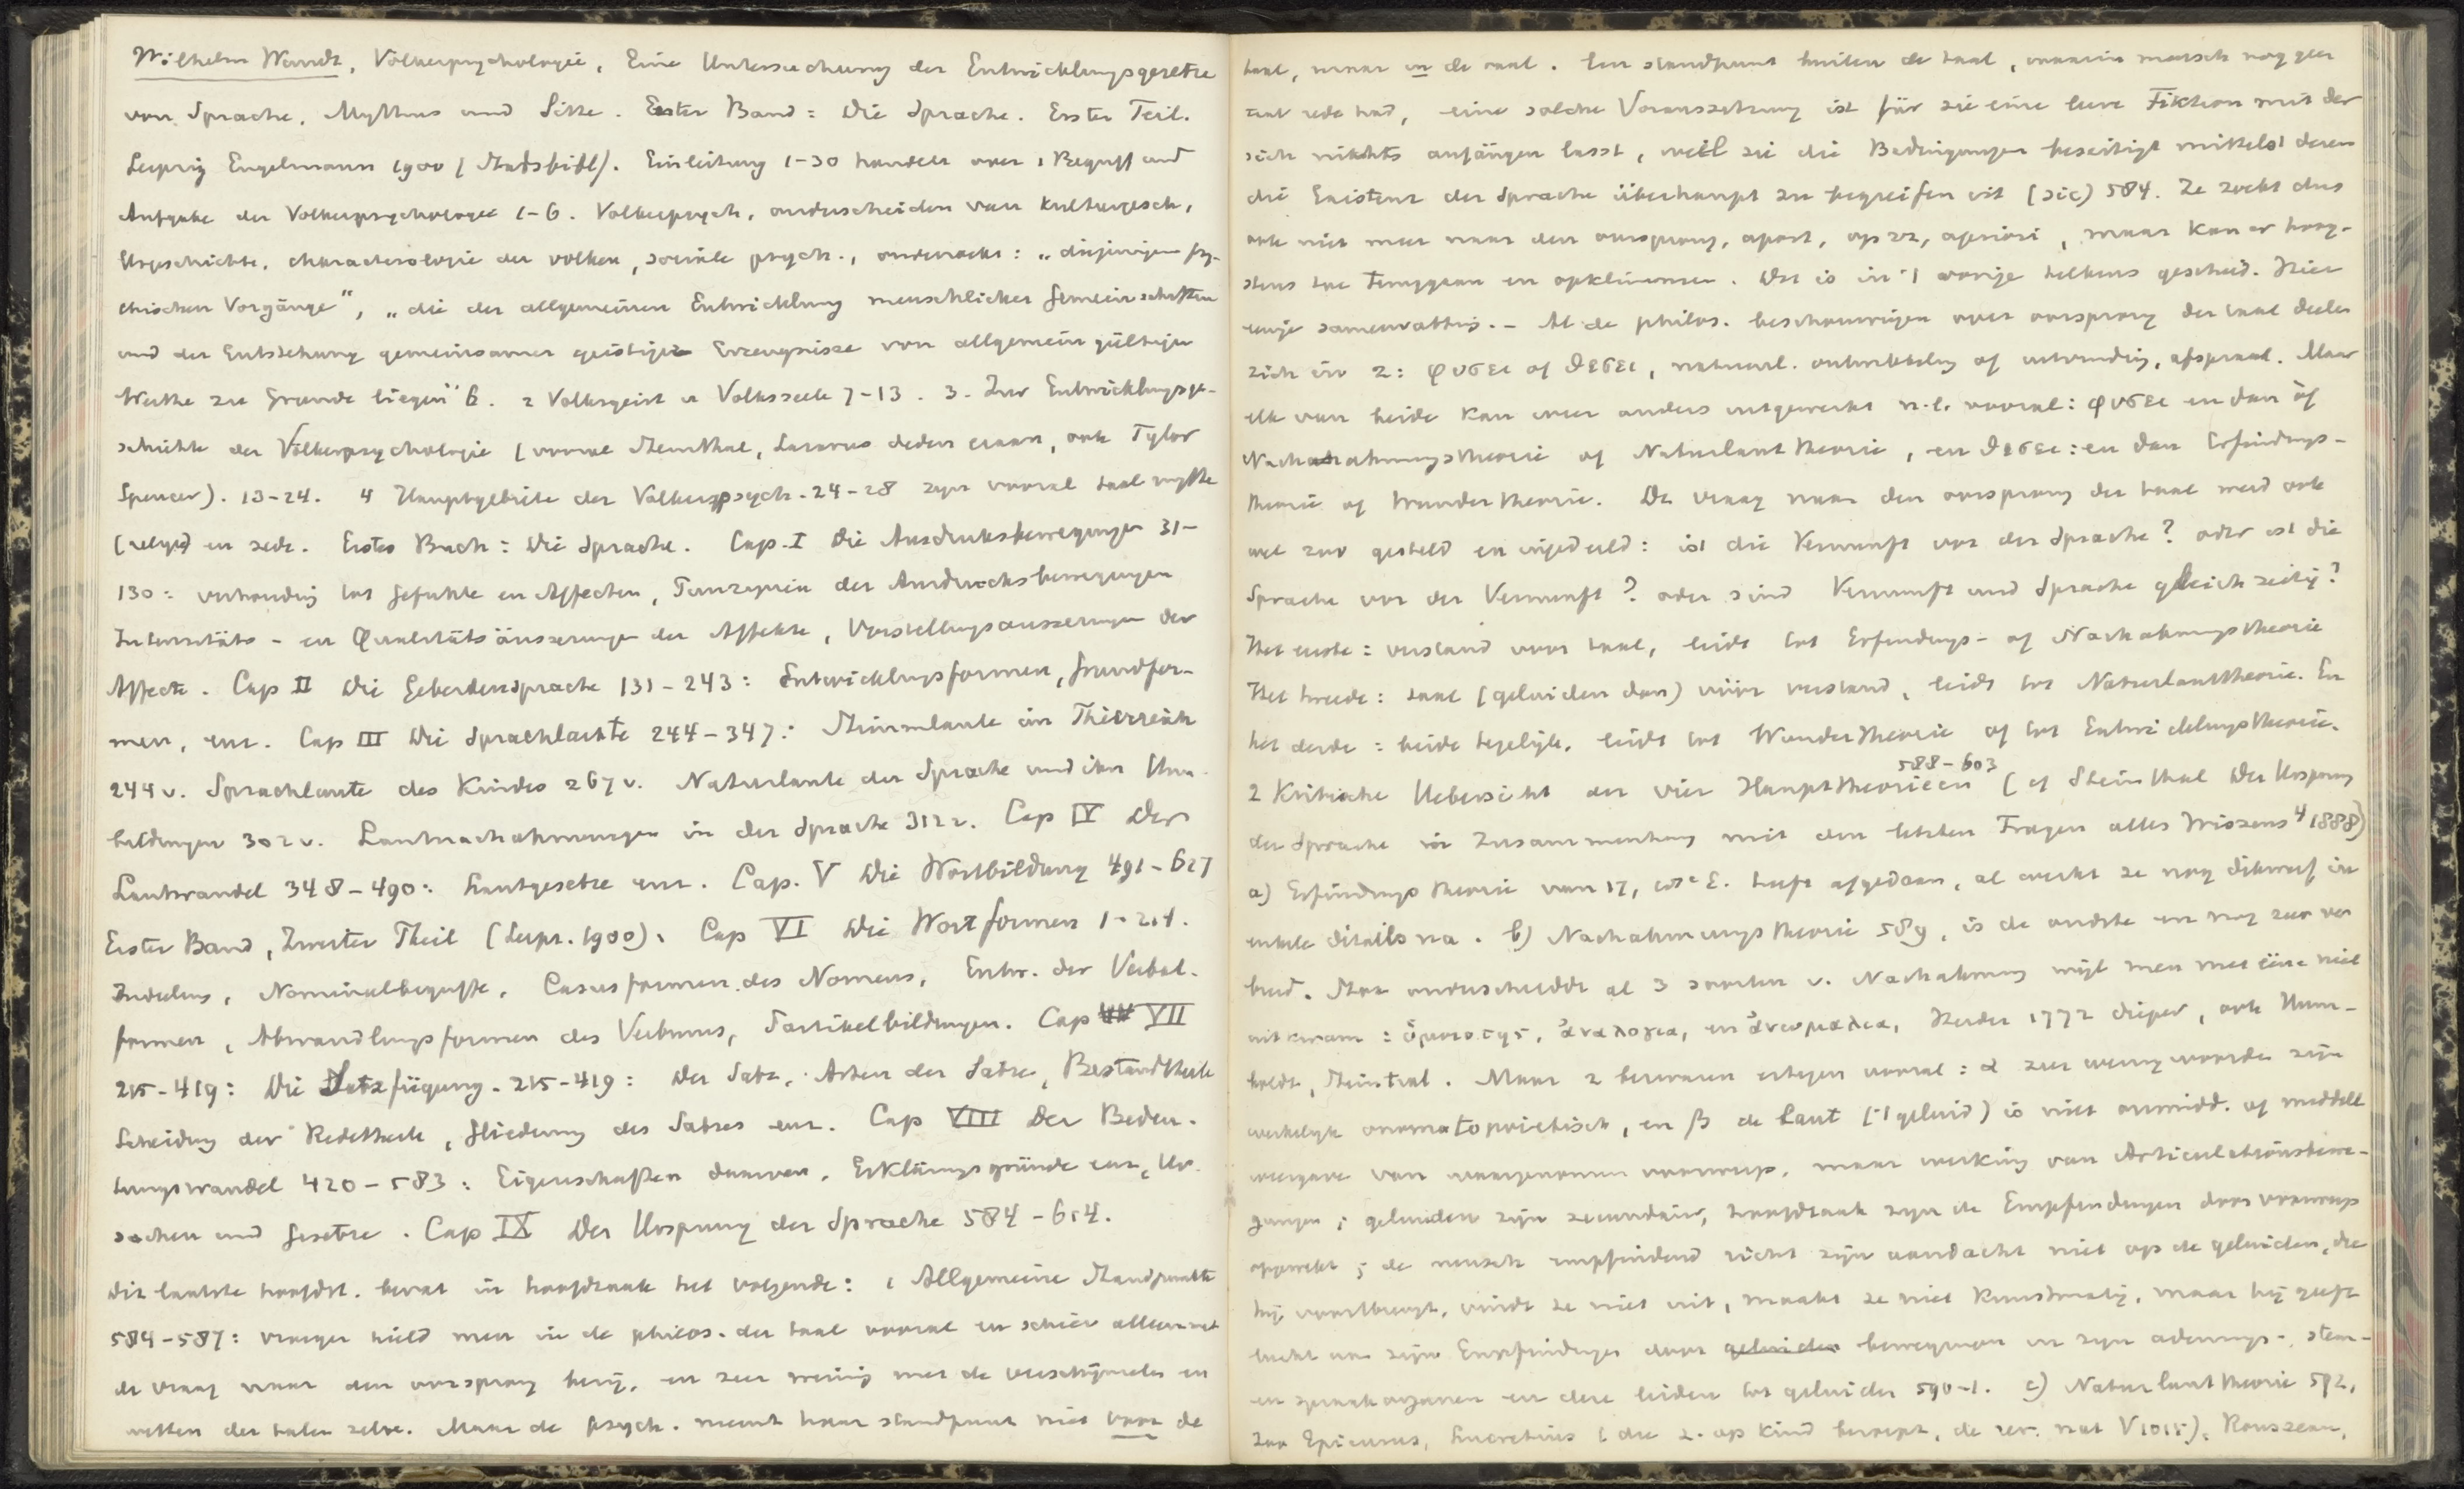 Wilhelm Wundt, Völkerpsychologie, Eine Untersuchung der Entwicklungsgesetze
von Sprache, Mythus und Sitte. Erster Band: Die Sprache. Erster Teil.
Leipzig Engelmann 1900 (Stadsbibl). Einleitung 1-30 handelt over 1 Begriff und
Aufgabe der Völkerpsychologie 1-6. Völkerpsych. onderscheiden van Kulturgesch,
Urgeschichte, characterologie der volken, sociale psych., onderzoekt: „diejenigen psy-
chischen Vorgänge", „die der allgemeinen Entwicklung menschlicher Gemeinschaften
und der Entstehung gemeinsamer geistiger Erzeugnisse von allgemein gültigem
Werthe zu Grunde liegen" 6. 2 Volksgeist u Volksseele 7-13. 3. Zur Entwicklungsge-
schichte der Völkerpsychologie (vooral Steinthal, Lazarus deden eraan, ook Tylor
Spencer). 13-24. 4 Hauptgebiete der Völkerpsych. 24-28 zijn vooral taal mythe
(religie) en zede. Erstes Buch: Die Sprache. Cap. I Die Ausdruksbewegungen 31-
130: verhouding tot Gefühle en Affecten, Principien der Ausdrucksbewegungen
Intensitäts- en Qualitätsäusserungen der Affekte, Vorstellungsausserungen der
Affecte. Cap II Die Geberdensprache 131-243: Entwicklungsformen, Grundfor-
men, enz. Cap III Die Sprachlaute 244-347: Stimmlaute im Thierreich
244 v. Sprachlaute des Kindes 267 v. Naturlaute der Sprache und ihre Um-
bildungen 302 v. Lautnachahmungen in der Sprache 312 v. Cap IV Der
Lautwandel 348-490: Lautgesetze enz. Cap. V Die Wortbildung 491-627
Erster Band, Zweiter Theil (Leipz. 1900). Cap VI Die Wortformen 1-214.
Inductus, Nominalbegriffe, Casusformen des Nomens, Entw. der Verbal-
formen, Abwandlungsformen des Verbums, Partikelbildungen. Cap VII
215-419: Die Satzfügung. 215-419: Der Satz, Arten der Sätze, Bestandtheile
Scheidung der Redetheile, Gliederung des Satzes enz. Cap VIII Der Bedeu-
tungswandel 420-583: Eigenschaften daarvan, Erklärungsgründe enz, Ur-
sachen und Gesetze. Cap IX Der Ursprung der Sprache 584-614.
Dit laatste hoofdst. bevat in hoofdzaak het volgende: 1 Allgemeine Standpunkte
584-587: vroeger hield men in de philos. der taal vooral en schier alleen met
de vraag naar den oorsprong bezig, en zeer weinig met de verschijnselen en
wetten der talen zelve. Maar de psych. neemt haar standpunt niet voor de
taal, maar in de taal. Een standpunt buiten de taal, waarin mensch nog geen
taal rede had, eine solche Voraussetzung ist für sie eine leere Fiktion mit der
sich nichts anfangen lasst, weil sie die Bedingungen beseitigt mittelst deren
die Existenz der Sprache überhaupt zu begreifen ist (sic) 584. Ze zoekt dus
ook niet meer naar den oorsprong, apart, op zz, apriori, maar kan er hoog-
stens toe teruggaan en opklimmen. Dat is in 't vorige telkens geschied. Hier
enige samenvatting. - Al de philos. beschouwingen over oorsprong der taal deelen
zich in 2: φυσει of θεσει, natuurl. ontwikkeling of uitvinding, afspraak. Maar
elk van beide kan weer anders uitgewerkt n.l. vooral: φυσει en dan òf
Nachahmungstheorie of Naturlauttheorie, en θεσει: en dan Erfindungs-
theorie of Wundertheorie. De vraag naar den oorsprong der taal werd ook
wel zoo gesteld en ingedeeld: ist die Vernunft vor der Sprache? oder ist die
Sprache vor der Vernunft? oder sind Vernunft und Sprache gleichzeitig?
Het eerste: verstand voor taal, leidt tot Erfindungs- of Nachahmungstheorie
Het tweede: taal (geluiden dan) vóór verstand, leidt tot Naturlauttheorie. En
het derde: beide tegelijk, leidt tot Wundertheorie of tot Entwickelungstheorie.
2 Kritische Uebersicht der vier Haupttheorieen 588-603 (cf Steinthal Der Ursprung
der Sprache in Zusammenhang mit den letzten Fragen alles Wissens 4 1888)
a) Erfindungstheorie van 17, 18e E. heeft afgedaan, al werkt ze nog dikwerf in
enkele details na. b) Nachahmungstheorie 589, is de oudste en nog zeer ver
breid. Stoa onderscheidde al 3 soorten v. Nachahmung wijl men met ééne niet
uitkwam: ὁμοιοτης, ἀναλογια, en ἀνωμαλια, Herder 1772 dieper, ook Hum-
boldt, Steintal. Maar 2 bezwaren ertegen vooral: α zeer weinig woorden zijn
werkelijk onomatopoietisch, en β de Laut ('t geluid) is niet onmidd. of middell
weergave van waargenomen voorwerp, maar werking van Articulationsbewe-
gungen; geluiden zijn secundair, hoofdzaak zijn de Empfindungen door voorwerp
opgewekt; de mensch empfindend richt zijn aandacht niet op de geluiden, die
hij voortbrengt, vindt ze niet uit, maakt ze niet kunstmatig, maar hij geeft
lucht aan zijn Empfindungen door geluiden bewegingen in zijn ademings-, stem-
en spraakorganen en deze leiden tot geluiden 590-1. c) Naturlauttheorie 592,
zoo Epicurus, Lucretius (die z. op kind beroept, de rer. nat V 1015), Rousseau,